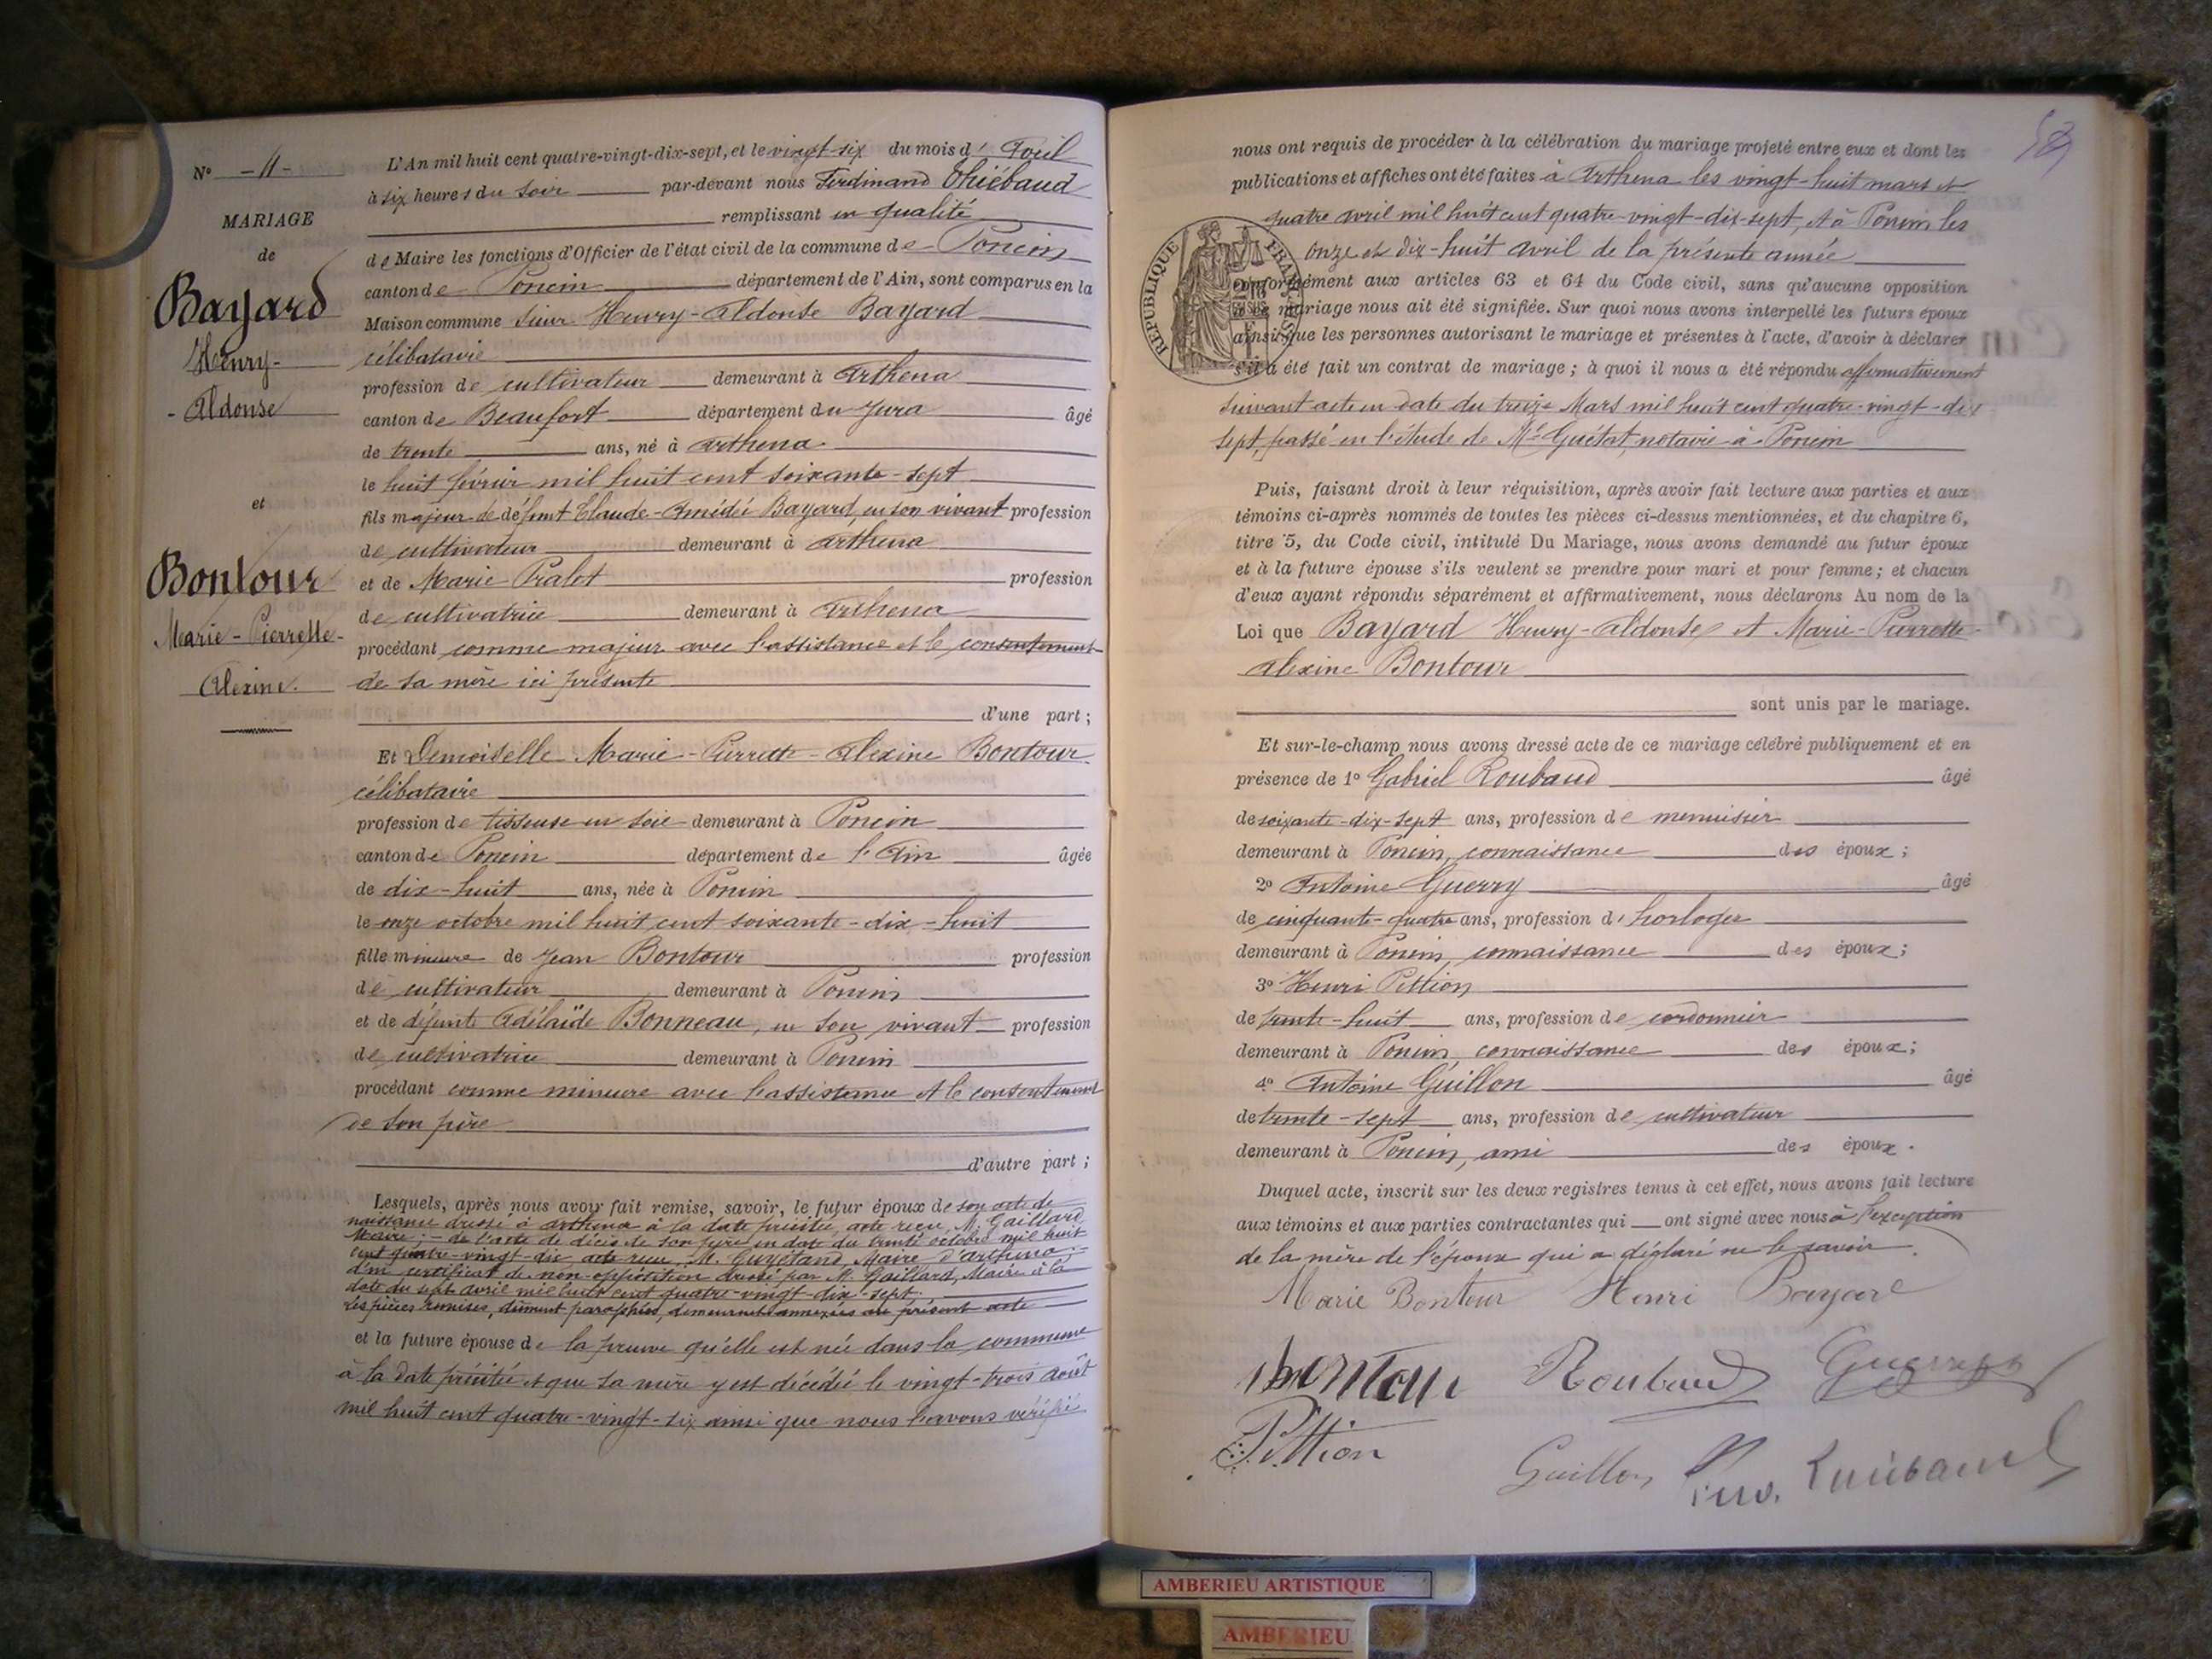 N° - 11 -
MARIAGE
de
Bayard
Henry-
- Aldonse
et
Bontour
Marie - Pierrette -
Alexine.
L'An mil huit cent quatre-vingt-dix-sept, et le vingt-six du mois d'Avril
à six heures du soir par-devant nous Ferdinand Thiébaud
remplissant en qualité
de Maire les fonctions d'Officier de l'état civil de la commune de Poncin
canton de Poncin département de l'Ain, sont comparus en la
Maison commune Sieur Henry-Aldonse Bayard
célibataire
profession de cultivateur demeurant à Arthena
canton de Beaufort département du Jura âgé
de trente ans, né à Arthena
le huit février mil huit cent soixante-sept
fils majeur de défunt Claude-Amédée Bayard, en son vivant profession
de cultivateur demeurant à Arthena
et de Marie Pralet profession
de cultivatrice demeurant à Arthena
procédant comme majeur avec l'assistance et le consentement
de sa mère ici présente
d'une part;
Et Demoiselle Marie-Pierrette-Alexine Bontour
célibataire
profession de tisseuse en soie demeurant à Poncin
canton de Poncin département de l'Ain âgée
de dix-huit ans, née à Poncin
le onze octobre mil huit cent soixante-dix-huit
fille mineure de Jean Bontour profession
de cultivateur demeurant à Poncin
et de défunte Adélaïde Bonneau, en son vivant profession
de cultivatrice demeurant à Poncin
procédant comme mineure avec l'assistance et le consentement
de son père
d'autre part;
Lesquels, après nous avoir fait remise, savoir, le futur époux de son acte de
naissance dressé à Arthena à la date précitée, acte reçu M. Gaillard,
Maire; - de l'acte de décès de son père en date du trente octobre mil huit
cent quatre-vingt-dix acte reçu M. Guyétand, Maire d'Arthena; -
d'un certificat de non-opposition dressé par M. Gaillard, Maire à la
date du sept avril mil huit cent quatre-vingt-dix-sept.
Les pièces remises, dûment paraphées, demeurent annexées au présent acte
et la future épouse de la preuve qu'elle est née dans la commune
à la date précitée et que sa mère y est décédée le vingt-trois août
mil huit cent quatre-vingt-six ainsi que nous l'avons vérifié
nous ont requis de procéder à la célébration du mariage projeté entre eux et dont les
publications et affiches ont été faites à Arthena les vingt-huit mars et
quatre avril mil huit cent quatre-vingt-dix-sept, et à Poncin les
onze et dix-huit avril de la présente année
RÉPUBLIQUE FRANÇAISE
conformément aux articles 63 et 64 du Code civil, sans qu'aucune opposition
à ce mariage nous ait été signifiée. Sur quoi nous avons interpellé les futurs époux
ainsi que les personnes autorisant le mariage et présentes à l'acte, d'avoir à déclarer
s'il a été fait un contrat de mariage; à quoi il nous a été répondu affirmativement
suivant acte en date du treize Mars mil huit cent quatre-vingt-dix
sept, passé en l'étude de Me Guétat, notaire à Poncin
Puis, faisant droit à leur réquisition, après avoir fait lecture aux parties et aux
témoins ci-après nommés de toutes les pièces ci-dessus mentionnées, et du chapitre 6,
titre 5, du Code civil, intitulé Du Mariage, nous avons demandé au futur époux
et à la future épouse s'ils veulent se prendre pour mari et pour femme; et chacun
d'eux ayant répondu séparément et affirmativement, nous déclarons Au nom de la
Loi que Bayard Henry-Aldonse et Marie-Pierrette
Alexine Bontour
sont unis par le mariage.
Et sur-le-champ nous avons dressé acte de ce mariage célébré publiquement et en
présence de 1° Gabriel Roubaud âgé
de soixante-dix-sept ans, profession de menuisier
demeurant à Poncin, connaissance des époux;
2° Antoine Guerry âgé
de cinquante-quatre ans, profession d'horloger
demeurant à Poncin, connaissance des époux;
3° Henri Pittion
de trente-huit ans, profession de cordonnier
demeurant à Poncin, connaissance des époux;
4° Antoine Guillon âgé
de trente-sept ans, profession de cultivateur
demeurant à Poncin, ami des époux.
Duquel acte, inscrit sur les deux registres tenus à cet effet, nous avons fait lecture
aux témoins et aux parties contractantes qui ont signé avec nous à l'exception
de la mère de l'époux qui a déclaré ne le savoir.
Marie Bontour Henri Bayard
Bontour Roubaud Guerry
Pittion
Guillon Thiébaud
AMBERIEU ARTISTIQUE
AMBERIEU